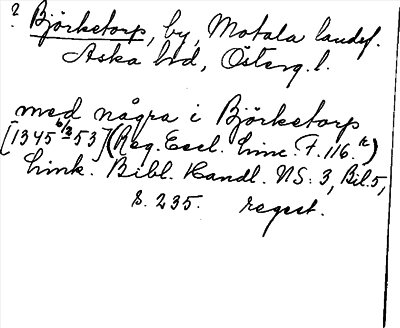 ? Björketorp, by, Motala landsf.
Aska hd, Österg. l.
med några i Björketorp
[1345 6/3 53] (Reg. Eccl. Linc. F. 116. tr)
Link. Bibl. Handl. NS: 3, Bil. 5,
s. 235. regest.